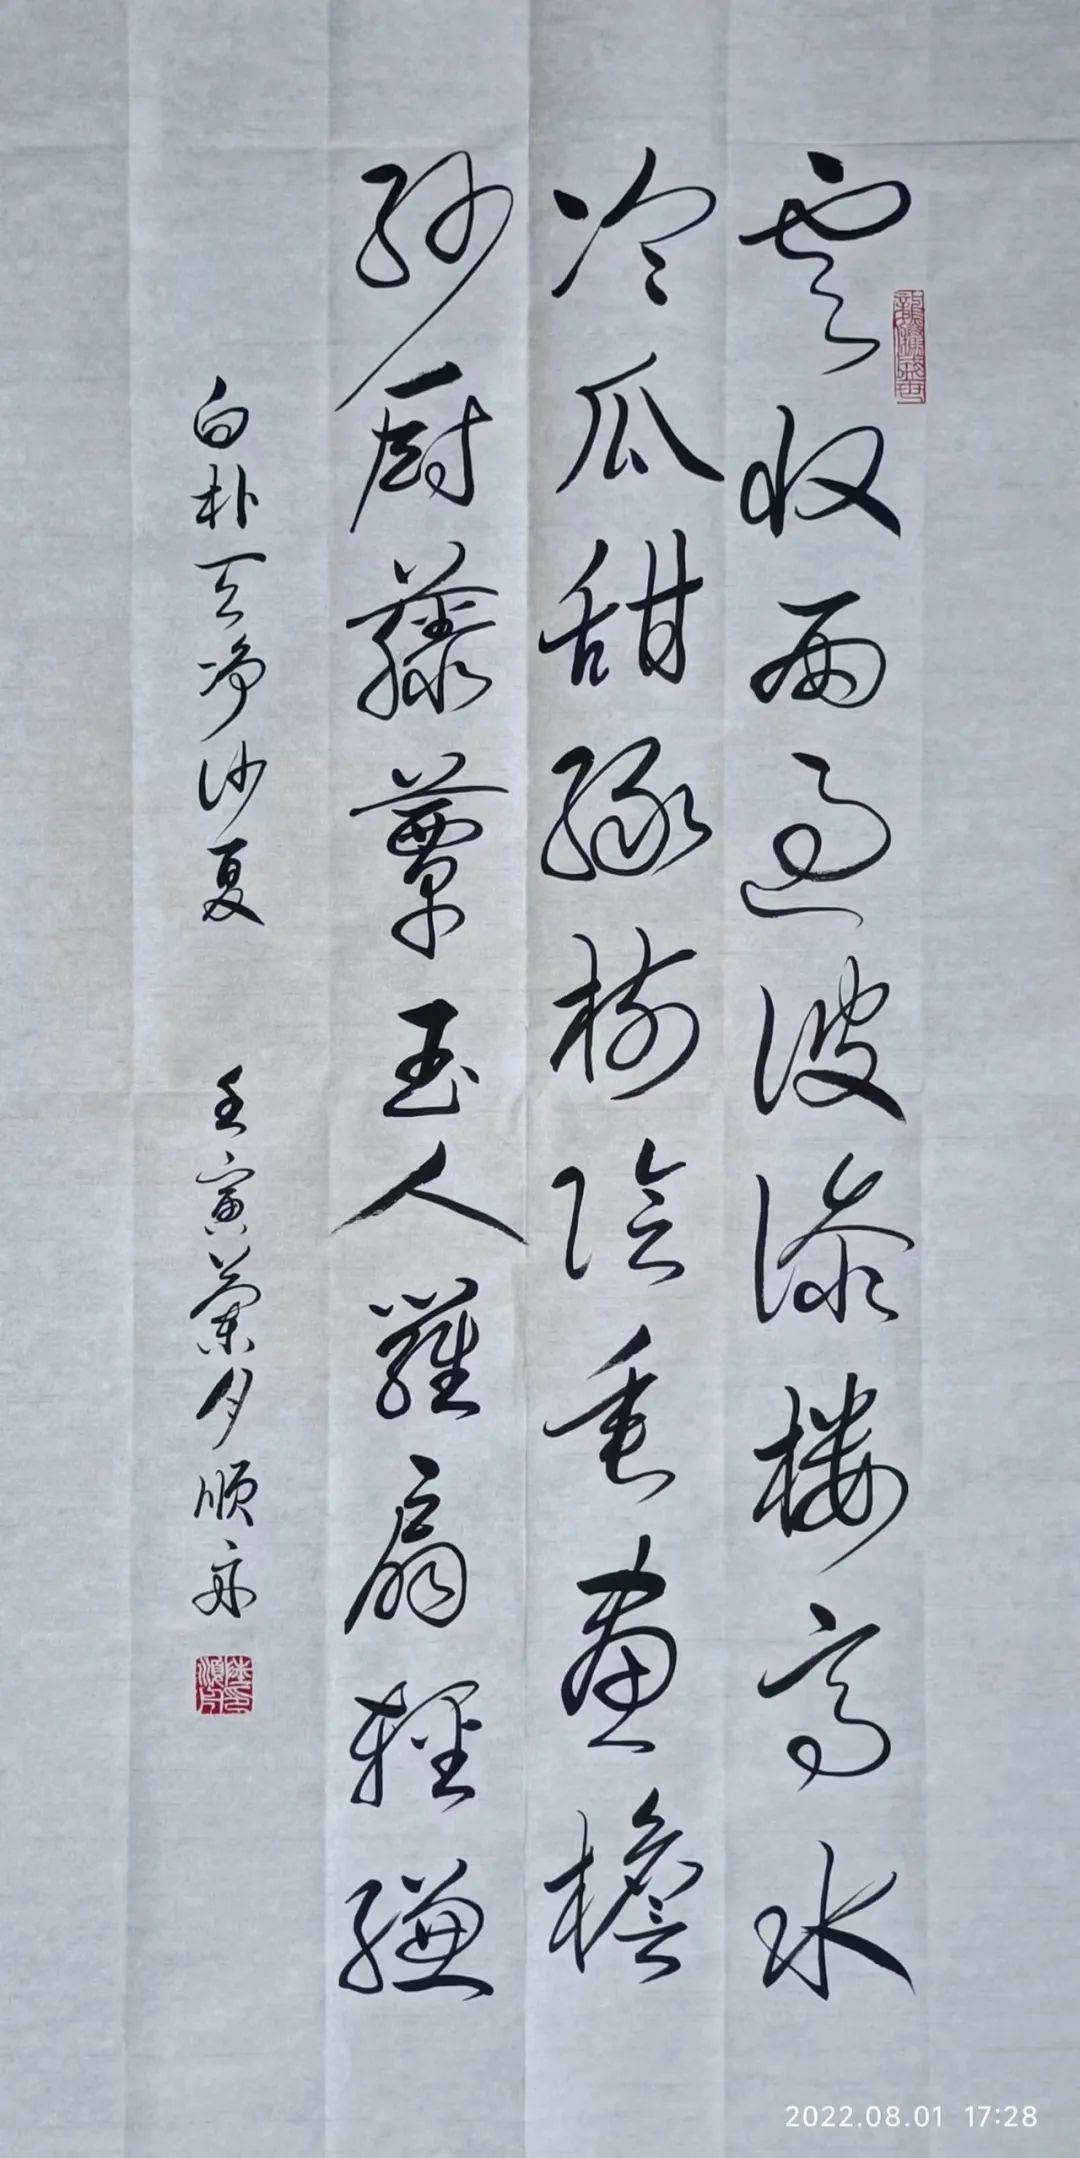 雲收雨過波添楼高水
冷瓜甜綠樹陰垂畫檐
紗厨藤簟玉人羅扇輕縑
白朴天净沙夏 壬寅蘭月顺
2022.08.01 17:28